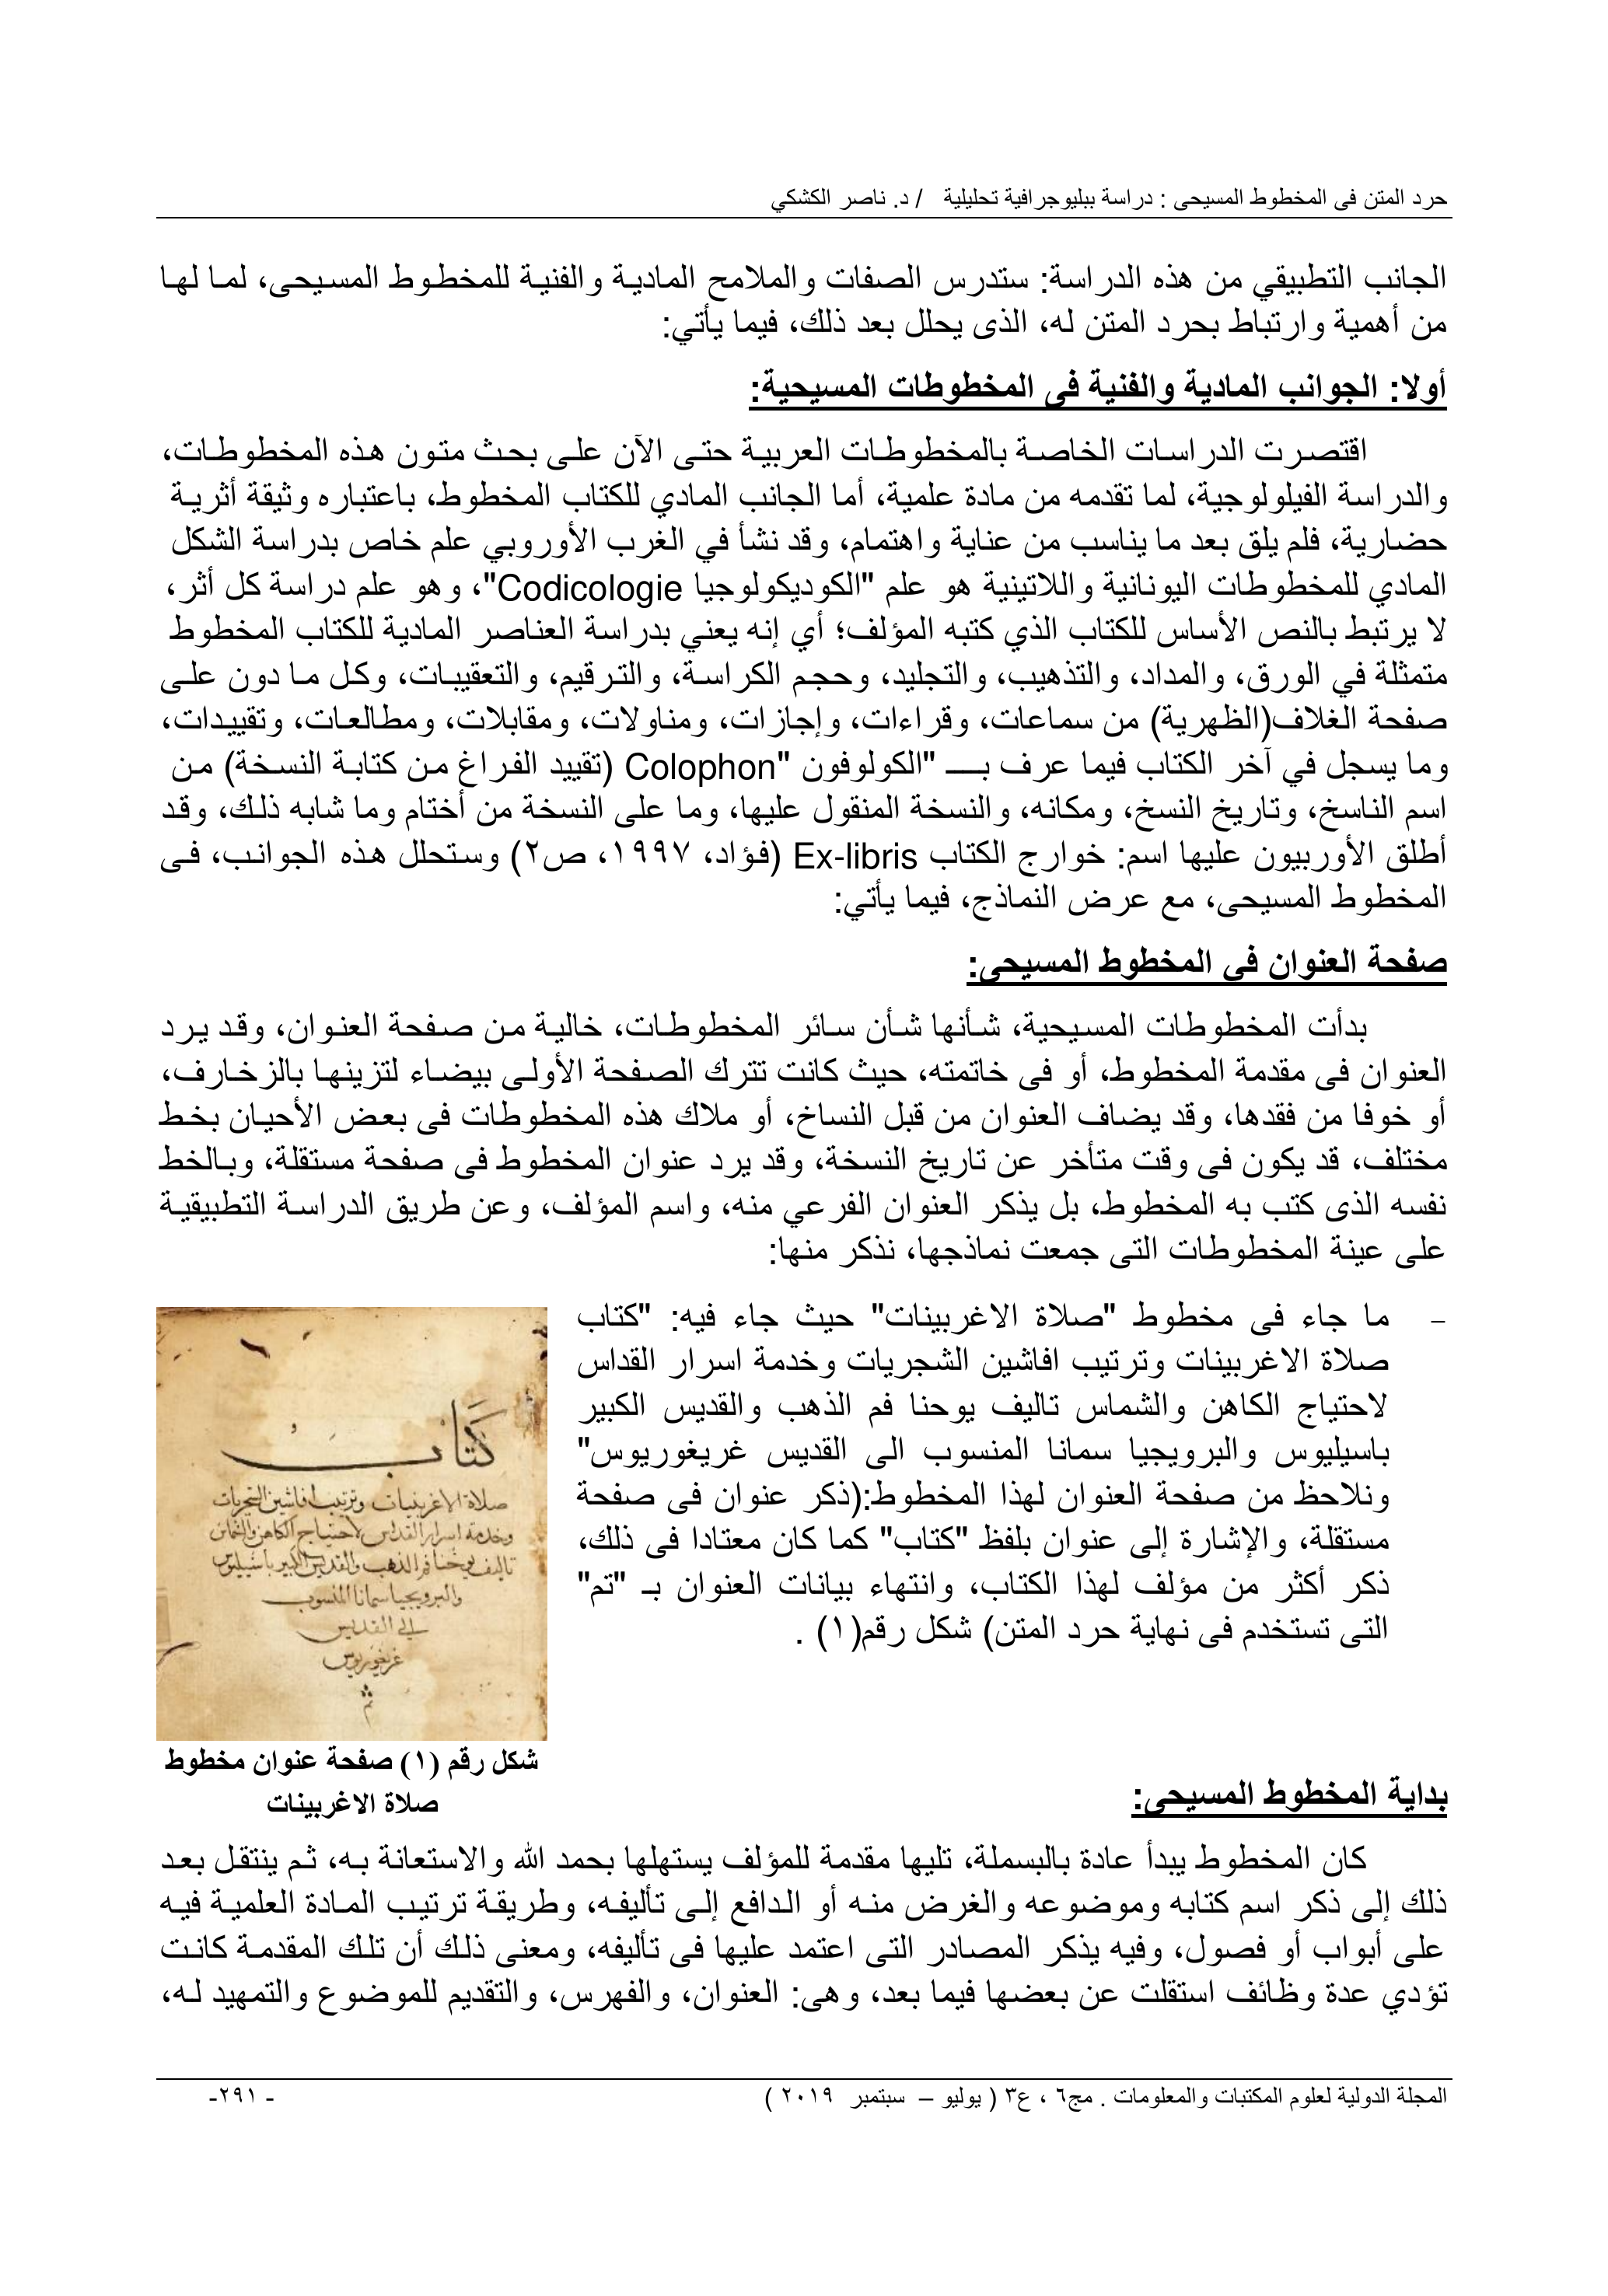 حرد المتن فى المخطوط المسيحى : دراسة ببليوجرافية تحليلية / د. ناصر الكشكي
الجانب التطبيقي من هذه الدراسة: ستدرس الصفات والملامح المادية والفنية للمخطوط المسيحى، لما لها
من أهمية وارتباط بحرد المتن له، الذى يحلل بعد ذلك، فيما يأتي:
أولا: الجوانب المادية والفنية فى المخطوطات المسيحية:
اقتصرت الدراسات الخاصة بالمخطوطات العربية حتى الآن على بحث متون هذه المخطوطات،
والدراسة الفيلولوجية، لما تقدمه من مادة علمية، أما الجانب المادي للكتاب المخطوط، باعتباره وثيقة أثرية
حضارية، فلم يلق بعد ما يناسب من عناية واهتمام، وقد نشأ في الغرب الأوروبي علم خاص بدراسة الشكل
المادي للمخطوطات اليونانية واللاتينية هو علم "الكوديكولوجيا Codicologie"، وهو علم دراسة كل أثر،
لا يرتبط بالنص الأساس للكتاب الذي كتبه المؤلف؛ أي إنه يعني بدراسة العناصر المادية للكتاب المخطوط
متمثلة في الورق، والمداد، والتذهيب، والتجليد، وحجم الكراسة، والترقيم، والتعقيبات، وكل ما دون على
صفحة الغلاف(الظهرية) من سماعات، وقراءات، وإجازات، ومناولات، ومقابلات، ومطالعات، وتقييدات،
وما يسجل في آخر الكتاب فيما عرف بـــ "الكولوفون "Colophon (تقييد الفراغ من كتابة النسخة) من
اسم الناسخ، وتاريخ النسخ، ومكانه، والنسخة المنقول عليها، وما على النسخة من أختام وما شابه ذلك، وقد
أطلق الأوربيون عليها اسم: خوارج الكتاب Ex-libris (فؤاد، ١٩٩٧، ص٢) وستحلل هذه الجوانب، فى
المخطوط المسيحى، مع عرض النماذج، فيما يأتي:
صفحة العنوان فى المخطوط المسيحى:
بدأت المخطوطات المسيحية، شأنها شأن سائر المخطوطات، خالية من صفحة العنوان، وقد يرد
العنوان فى مقدمة المخطوط، أو فى خاتمته، حيث كانت تترك الصفحة الأولى بيضاء لتزينها بالزخارف،
أو خوفا من فقدها، وقد يضاف العنوان من قبل النساخ، أو ملاك هذه المخطوطات فى بعض الأحيان بخط
مختلف، قد يكون فى وقت متأخر عن تاريخ النسخة، وقد يرد عنوان المخطوط فى صفحة مستقلة، وبالخط
نفسه الذى كتب به المخطوط، بل يذكر العنوان الفرعي منه، واسم المؤلف، وعن طريق الدراسة التطبيقية
على عينة المخطوطات التى جمعت نماذجها، نذكر منها:
- ما جاء فى مخطوط "صلاة الاغربينات" حيث جاء فيه: "كتاب
صلاة الاغربينات وترتيب افاشين الشجريات وخدمة اسرار القداس
لاحتياج الكاهن والشماس تاليف يوحنا فم الذهب والقديس الكبير
باسيليوس والبرويجيا سمانا المنسوب الى القديس غريغوريوس"
ونلاحظ من صفحة العنوان لهذا المخطوط:(ذكر عنوان فى صفحة
مستقلة، والإشارة إلى عنوان بلفظ "كتاب" كما كان معتادا فى ذلك،
ذكر أكثر من مؤلف لهذا الكتاب، وانتهاء بيانات العنوان بـ "تم"
التى تستخدم فى نهاية حرد المتن) شكل رقم(١) .
كتاب
صلاة الاغربينات وترتيب افاشين الشجريات
وخدمة اسرار القداس لاحتياج الكاهن والشماس
تاليف يوحنا فم الذهب والقديس الكبير باسيليوس
والبرويجيا سمانا المنسوب
الى القديس
غريغوريوس
تم
شكل رقم (١) صفحة عنوان مخطوط
صلاة الاغربينات
بداية المخطوط المسيحى:
كان المخطوط يبدأ عادة بالبسملة، تليها مقدمة للمؤلف يستهلها بحمد الله والاستعانة به، ثم ينتقل بعد
ذلك إلى ذكر اسم كتابه وموضوعه والغرض منه أو الدافع إلى تأليفه، وطريقة ترتيب المادة العلمية فيه
على أبواب أو فصول، وفيه يذكر المصادر التى اعتمد عليها فى تأليفه، ومعنى ذلك أن تلك المقدمة كانت
تؤدي عدة وظائف استقلت عن بعضها فيما بعد، وهى: العنوان، والفهرس، والتقديم للموضوع والتمهيد له،
المجلة الدولية لعلوم المكتبات والمعلومات . مج٦ ، ع٣ ( يوليو – سبتمبر ٢٠١٩ )
- ٢٩١-